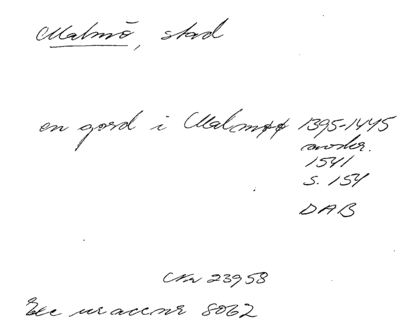 Malmö, stad
en gord i Malmøø 1395-1445
avskr.
1541
s. 154
DAB
Nr 23958
ur accnr 8062